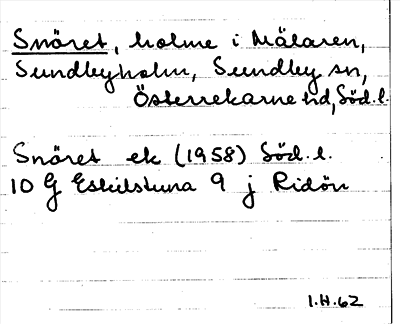 Snöret, holme i Mälaren,
Sundbyholm, Sundby sn,
Österrekarne hd, Söd. l.
Snöret ek (1958) Söd. l.
10 G Eskilstuna 9 j Ridön
I.H.62